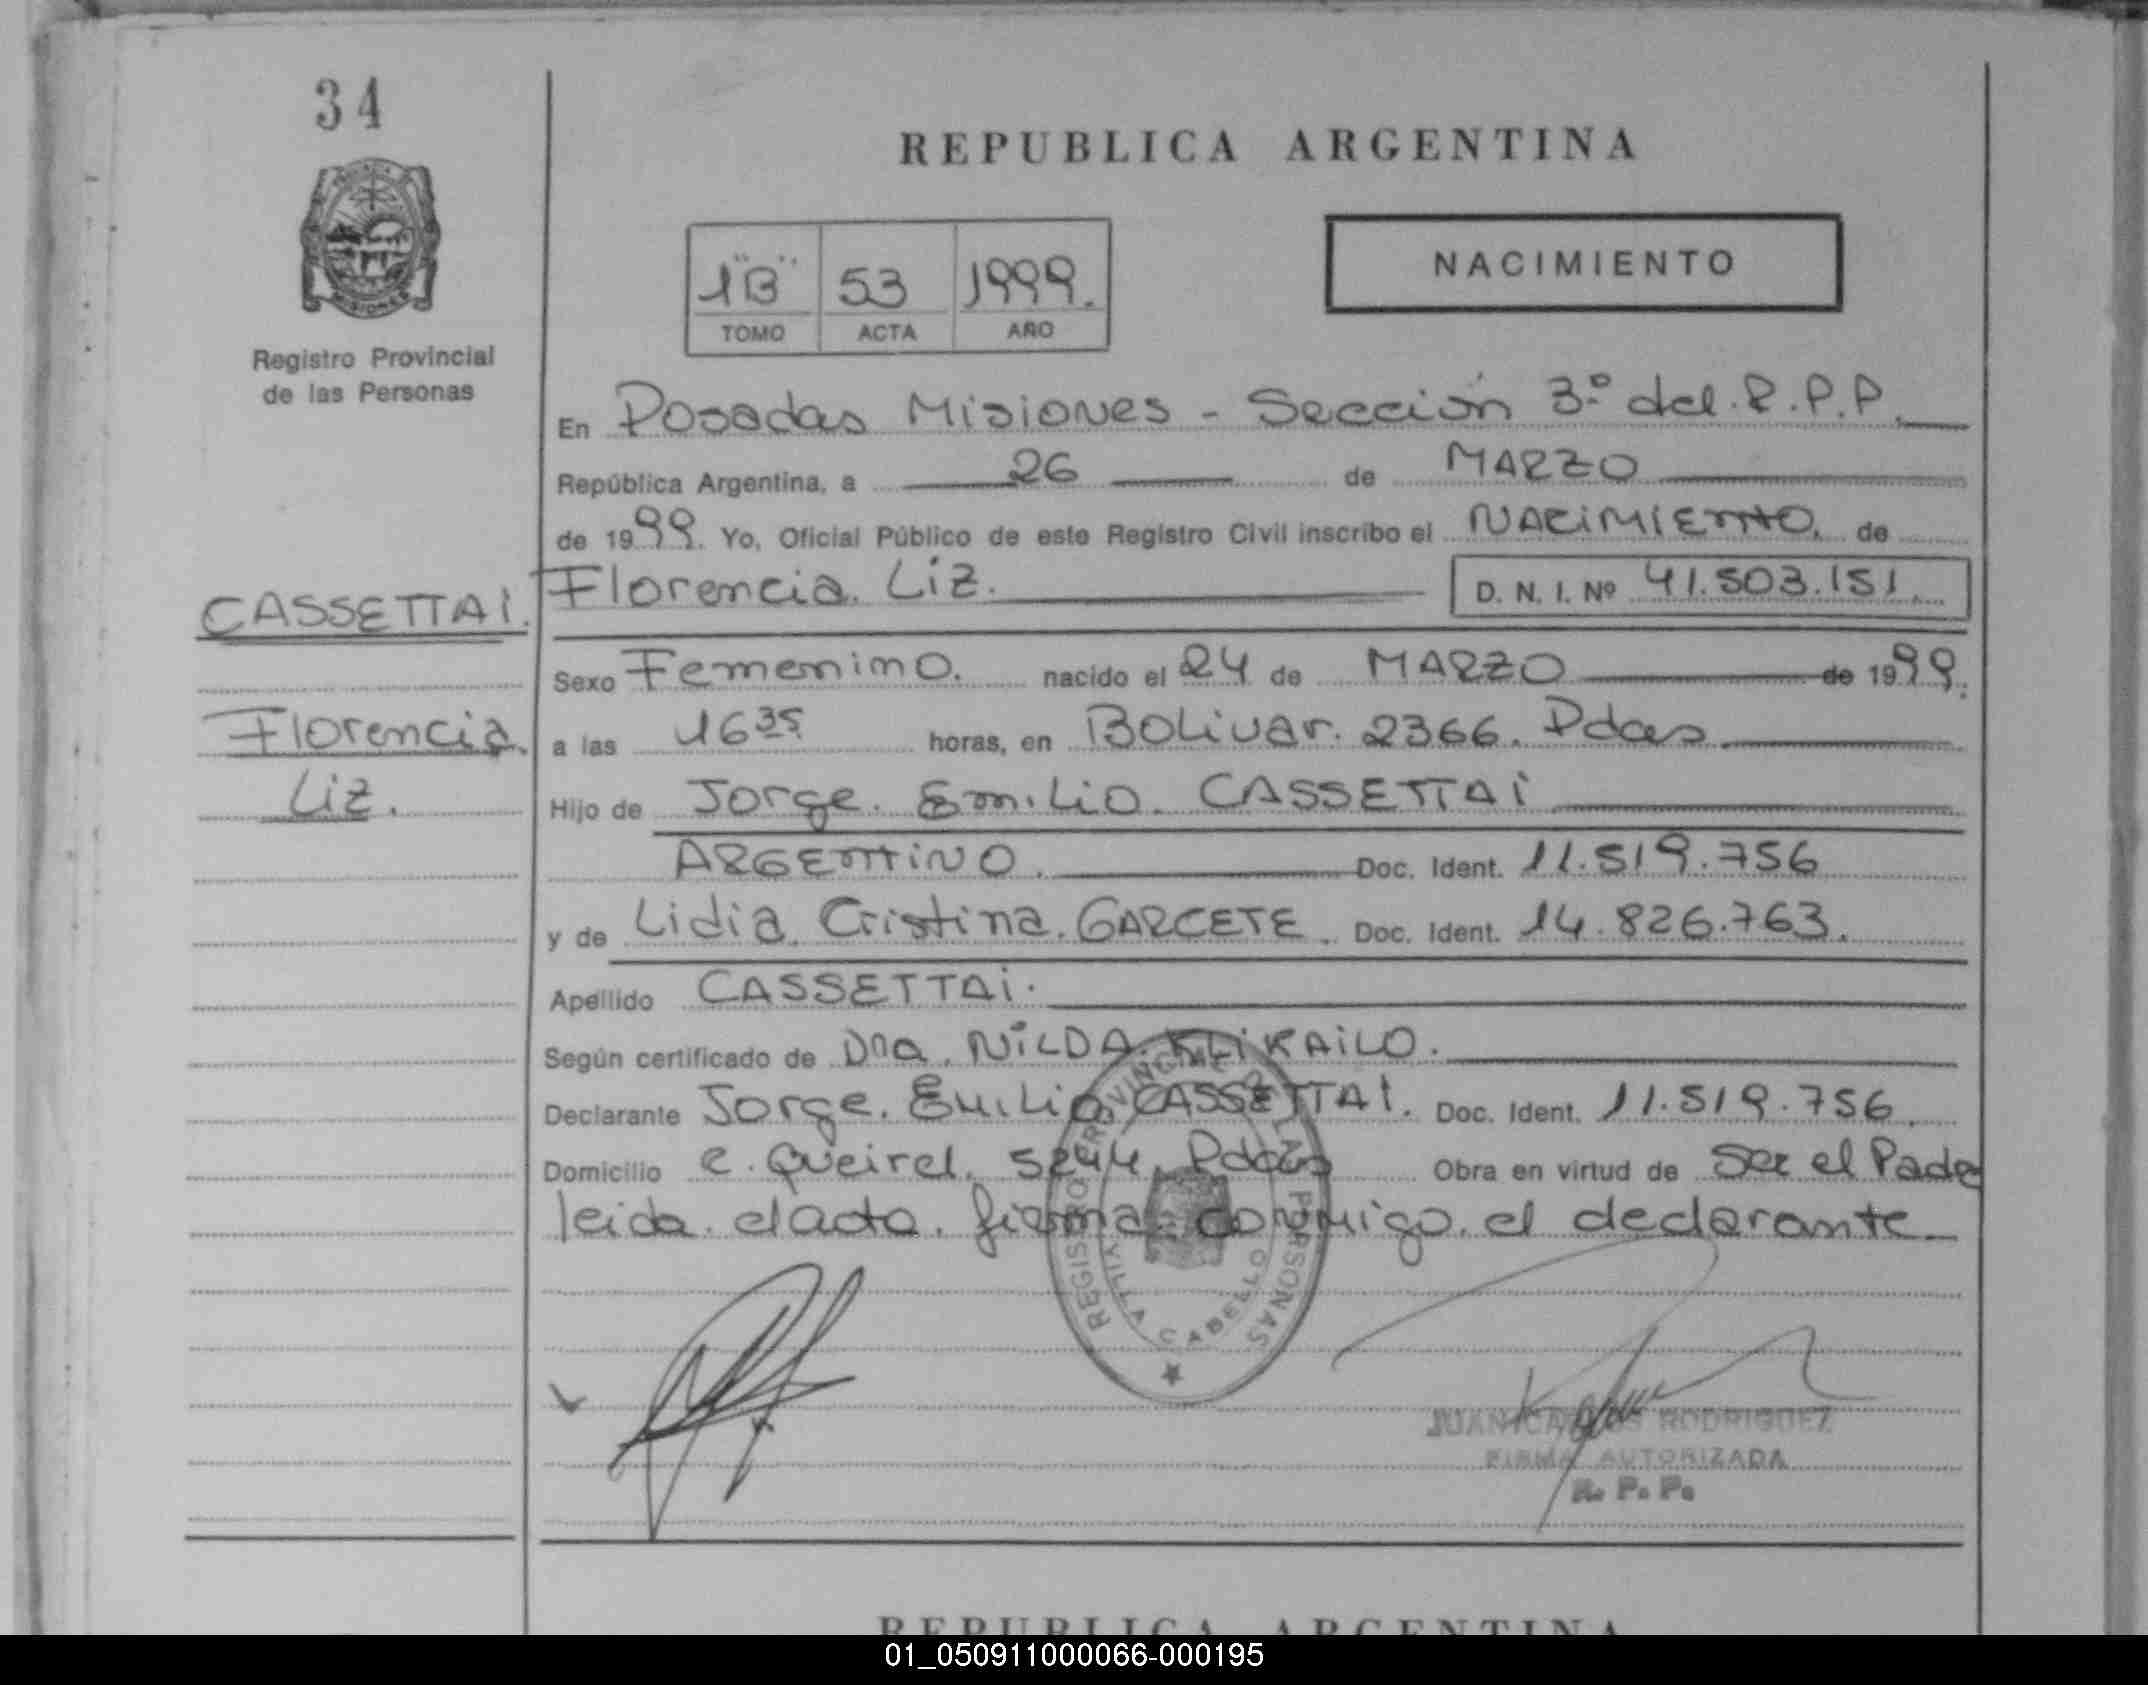 34
REPUBLICA ARGENTINA
1"B" 53 1999.
TOMO ACTA AÑO
NACIMIENTO
MISIONES
Registro Provincial
de las Personas
En Posadas Misiones - Sección 3º del R.P.P.
República Argentina, a 26 de MARZO
de 1999. Yo, Oficial Público de este Registro Civil inscribo el NACIMIENTO. de
CASSETTAI. Florencia Liz. D. N. I. Nº 41.503.151.
Sexo Femenino. nacido el 24 de MARZO de 1999.
Florencia a las 16 35 horas, en Bolivar. 2366. Pdas
Liz. Hijo de Jorge. Emilio. CASSETTAI
ARGENTINO. Doc. Ident. 11.519.756
y de Lidia Cristina. GARCETE. Doc. Ident. 14.826.763.
Apellido CASSETTAI.
Según certificado de Dra. NILDA
Declarante Jorge. Emilio CASSETTAI. Doc. Ident. 11.519.756
Domicilio C. Queirel. 5244. Pdas Obra en virtud de Ser el Padre
leida. el acta. firma conmigo. el declarante
REGISTRO PROVINCIAL DE LAS PERSONAS
VILLA CABELLO
JUAN CARLOS RODRIGUEZ
FIRMA AUTORIZADA
R. P. P.
REPUBLICA ARGENTINA
01_050911000066-000195